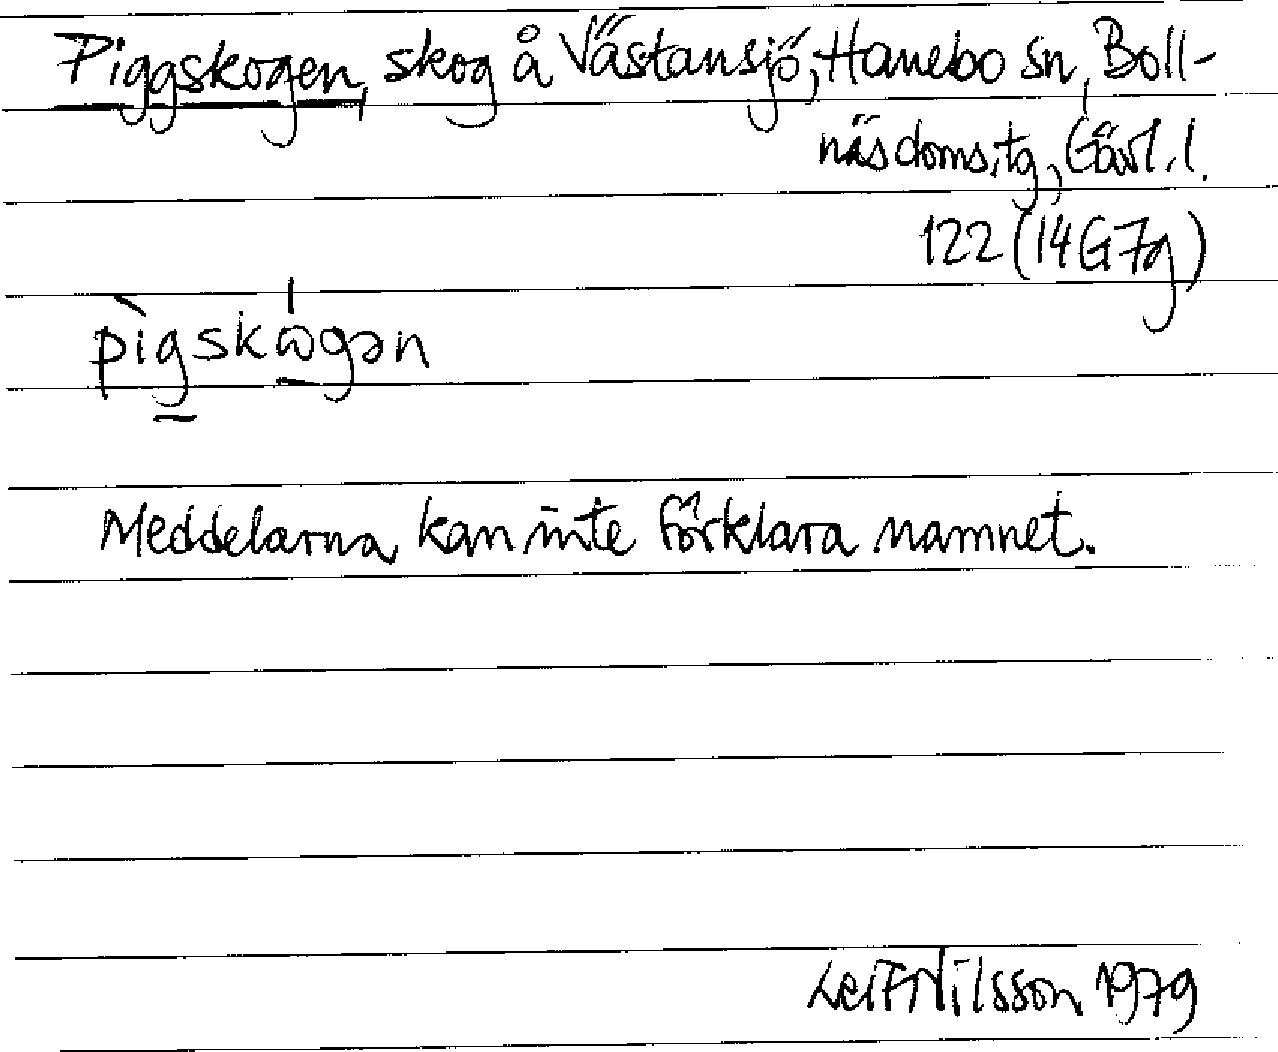 Piggskogen, skog å Västansjö, Hanebo sn, Boll-
näs doms. tg, Gävl. l.
122 (14G7g)
pìgskω̍gən
Meddelarna kan inte förklara namnet.
Leif Nilsson 1979